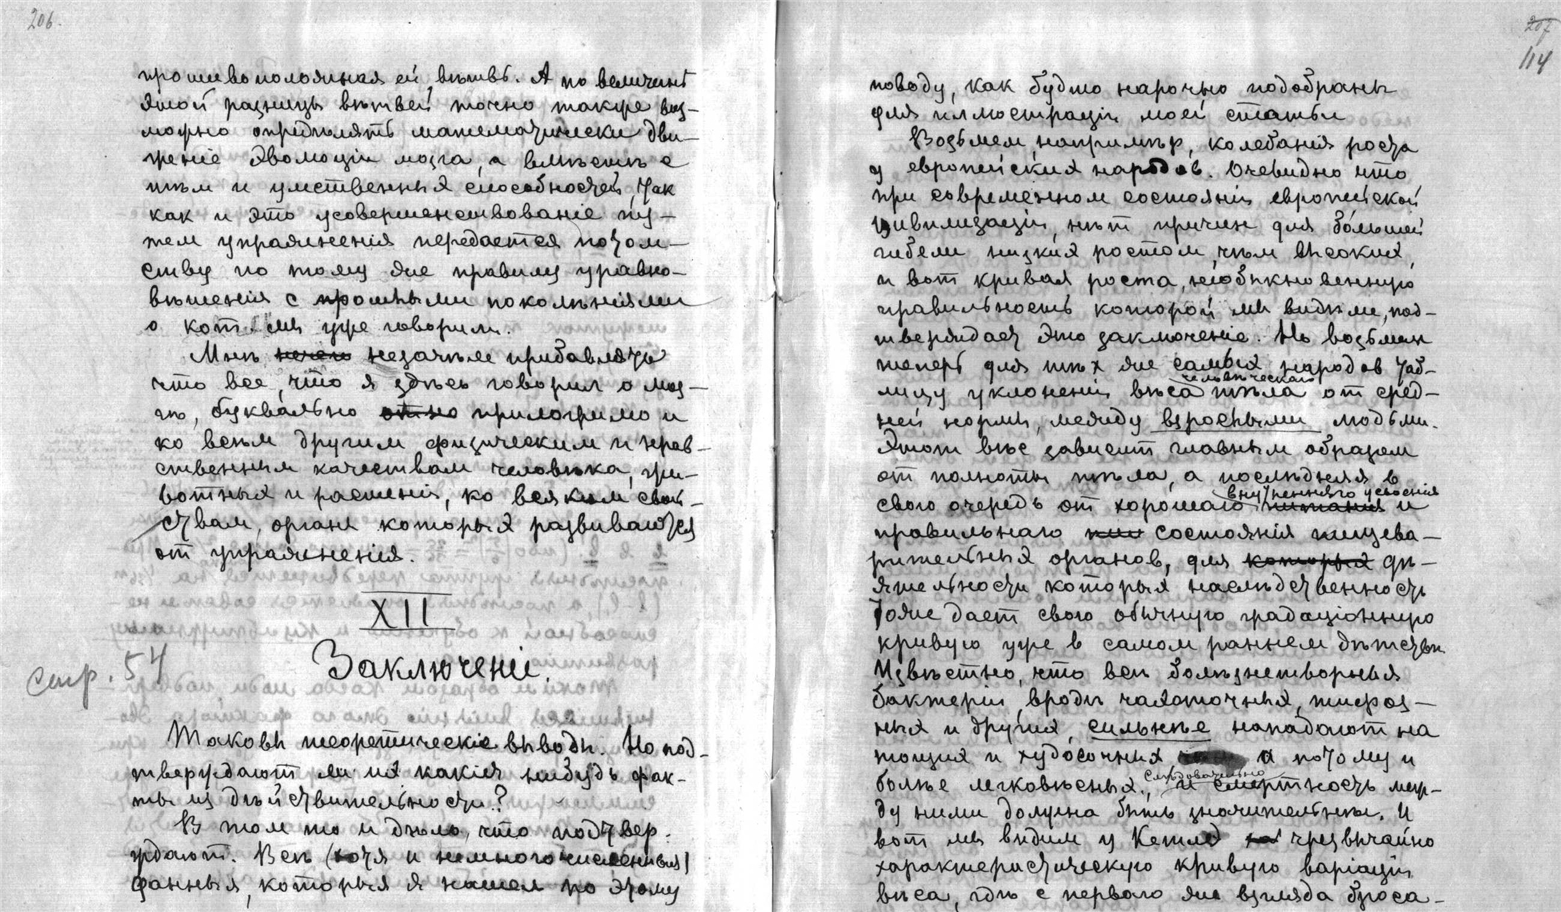 206.
противоположная ей вѣтвь. А по величинѣ
этой разницы вѣтвей точно также воз-
можно опредѣлять математически дви-
женіе эволюціи мозга, а вмѣстѣ с
тѣм и умственныя способностей, так
как и это усовершенствованіе пу-
тем упражненія передается потом-
ству по тому же правилу уравно-
вѣшенія с прошлыми поколѣніями
о кот. мы уже говорили.
Мнѣ нечего незачѣм прибавлять
что все, что я здѣсь говорил о моз-
гѣ, буквально приложимо и
ко всѣм другим физическим и нрав-
ственным качествам человѣка, жи-
вотных и растеній, ко всяким свой-
ствам, органы которых развиваются
от упражненія.
XII
Заключеніе.
стр. 54
Таковы теоретическіе выводы. Но под-
тверждают ли их какія нибудь фак-
ты из дѣйствительности?
В том то и дѣло, что подтвер-
ждают. Всѣ (хотя и немногочисленныя)
данныя, которыя я нашел по этому
207
114
поводу, как будто нарочно подобраны
для иллюстраціи моей статьи
Возьмем, напримѣр, колебанія роста
у европейских народов. Очевидно что
при современном состояніи европейской
цивилизаціи, нѣт причин для большей
гибели низких ростом, чѣм высоких,
и вот кривая роста, необыкновенную
правильность которой мы видѣли, под-
тверждает это заключеніе. Но возьмем
теперь для тѣх же самых народов таб-
лицу уклоненій вѣса человѣческаго тѣла от сред-
ней нормы, между взрослыми людьми.
Этот вѣс зависит главным образом
от полноты тѣла, а послѣдняя в
свою очередь от хорошаго внутренняго усвоенія питанія и
правильнаго состоянія пищева-
рительных органов, для которых дѣ-
ятельности которых наслѣдственность
тоже дает свою обычную градаціонную
кривую уже в самом раннем дѣтствѣ.
Извѣстно, что всѣ болѣзнетворныя
бактеріи, вродѣ чахоточных, тифоз-
ных и других, сильнѣе нападают на
тощих и худосочных, а потому и
болѣе легковѣсных, слѣдовательно и смертность меж-
ду ними должна быть значительнѣе. И
вот мы видим у Кетле чрезвычайно
характеристическую кривую варіацій
вѣса, гдѣ с перваго же взгляда броса-